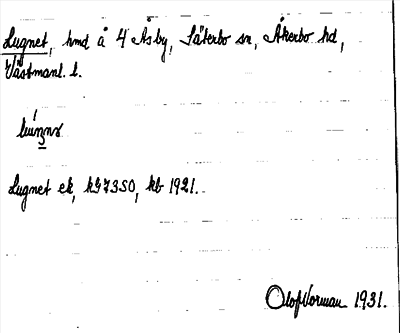 Lugnet, hmd å 4 Åsby, Säterbo sn, Åkerbo hd,
Västmanl. l.
Lugnet ek, kb 1921.
Olof Norman 1931.